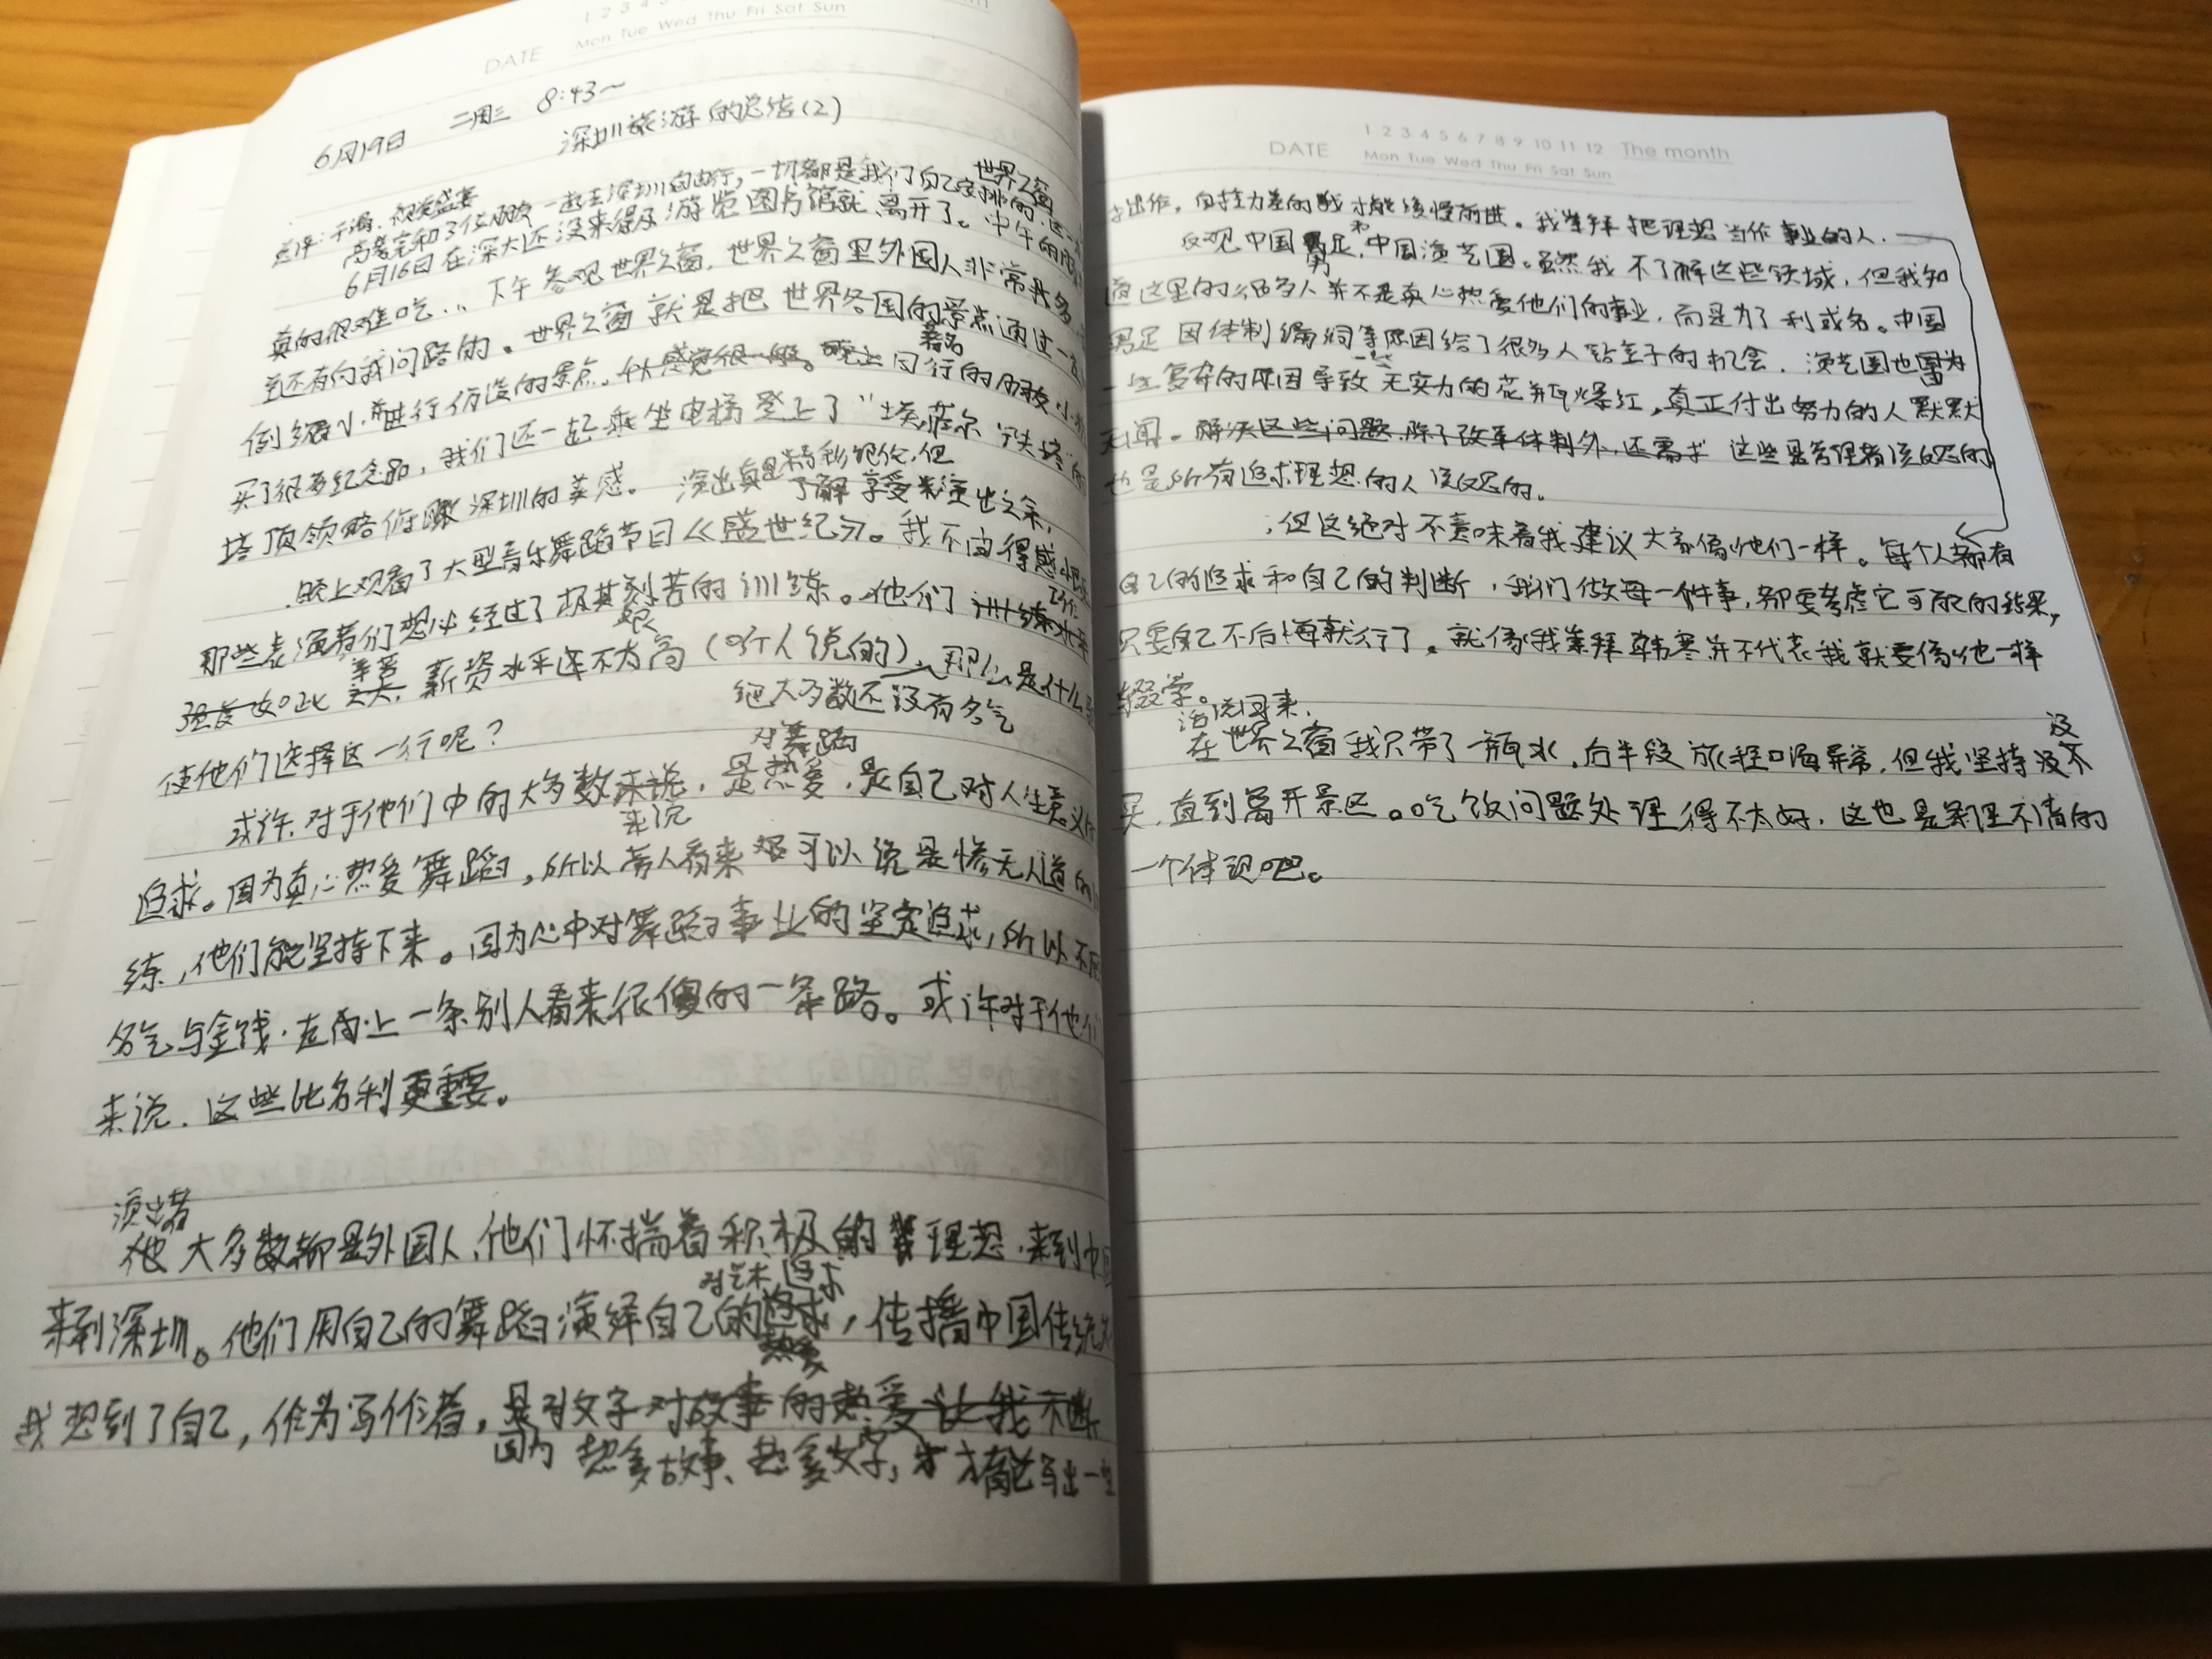 1 2 3 4 5
DATE Mon Tue Wed Thu Fri Sat Sun
6月19日 周三 8:43~
深圳旅游的总结(2)
世界之窗
高考完和3位朋友一起去深圳自由行,一切都是我们自己安排的,这
6月16日在深大还没来得及游览图书馆就离开了。中午的
真的很难吃... 下午参观世界之窗,世界之窗里外国人非常多
还有向我问路的。世界之窗就是把世界各国的景点通过一
著名
倒缩小进行仿造的景点。感觉很一般。同行的朋友
买了很多纪念品,我们还一起乘坐电梯登上了“埃菲尔铁塔”
塔顶领略俯瞰深圳的美感。 演出真是精彩绝伦,但
享受演出之余,
晚上观看了大型音乐舞蹈节目《盛世纪》。我不由得感
那些表演者们想必经过了极其刻苦的训练。他们
强度如此 辛苦 薪资水平还不太高(听人说的),那么是什么
绝大多数还没有名气
使他们选择这一行呢?
对舞蹈
或许,对于他们中的大多数来说,是热爱,是自己对人生意义的
来说
追求。因为真心热爱舞蹈,所以旁人看来可以说是惨无人道的
练,他们能坚持下来。因为心中对舞蹈事业的坚定追求,所以不
名气与金钱,走向上一条别人看来很傻的一条路。或许对于他们
来说,这些比名利更重要。
演出者
他大多数都是外国人,他们怀揣着积极的理想,来到中国
对艺术 追求
来到深圳。他们用自己的舞蹈演绎自己的追求,传播中国传统
热爱
我想到了自己,作为写作者,是对文字对故事的热爱让我不断
因为热爱故事、热爱文字,才能写出一些
DATE 1 2 3 4 5 6 7 8 9 10 11 12 The month
Mon Tue Wed Thu Fri Sat Sun
才能缓慢前进。我崇拜把理想当作事业的人.
反观中国男足和中国演艺圈。虽然我不了解这些领域,但我知
道这里的很多人并不是真心热爱他们的事业,而是为了利或名。中国
男足因体制漏洞等原因给了很多人钻空子的机会.演艺圈也因为
一些复杂的原因导致一些无实力的花瓶爆红,真正付出努力的人默默
无闻。解决这些问题,除了改革体制外,还需求 这些是管理者该反思的
也是所有追求理想的人该反思的。
,但这绝对不意味着我建议大家像他们一样。每个人都有
自己的追求和自己的判断,我们做每一件事,都要考虑它可能的结果,
只要自己不后悔就行了。就像我崇拜韩寒并不代表我就要像他一样
辍学。
话说回来,
在世界之窗我只带了一瓶水,后半段旅程口渴异常,但我坚持没不
没
买,直到离开景区。吃饭问题处理得不太好,这也是条理不清的
一个体现吧。